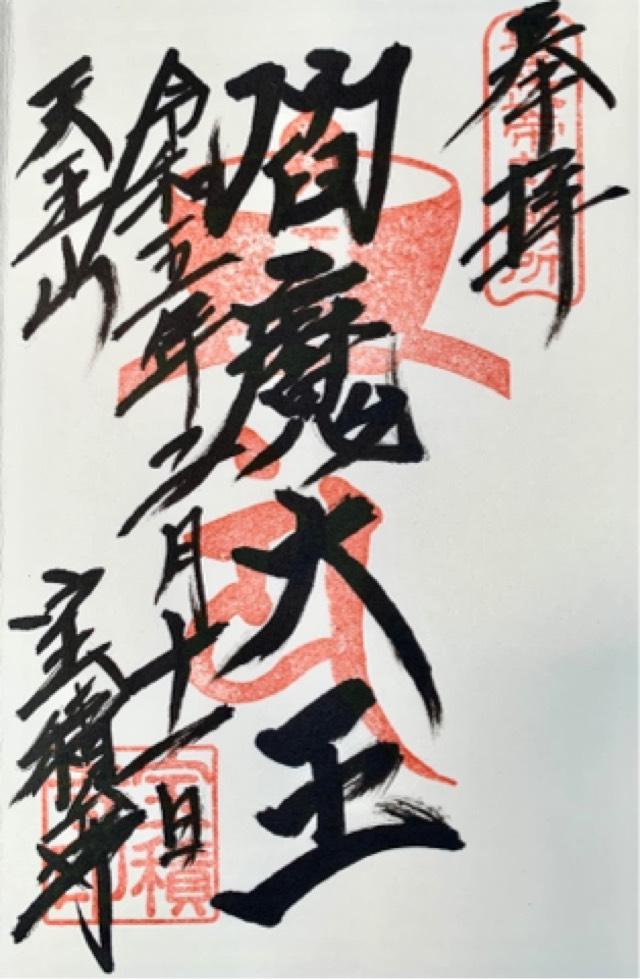 奉拝
閻魔大王
令和五年二月十一日
天王山
宝積寺